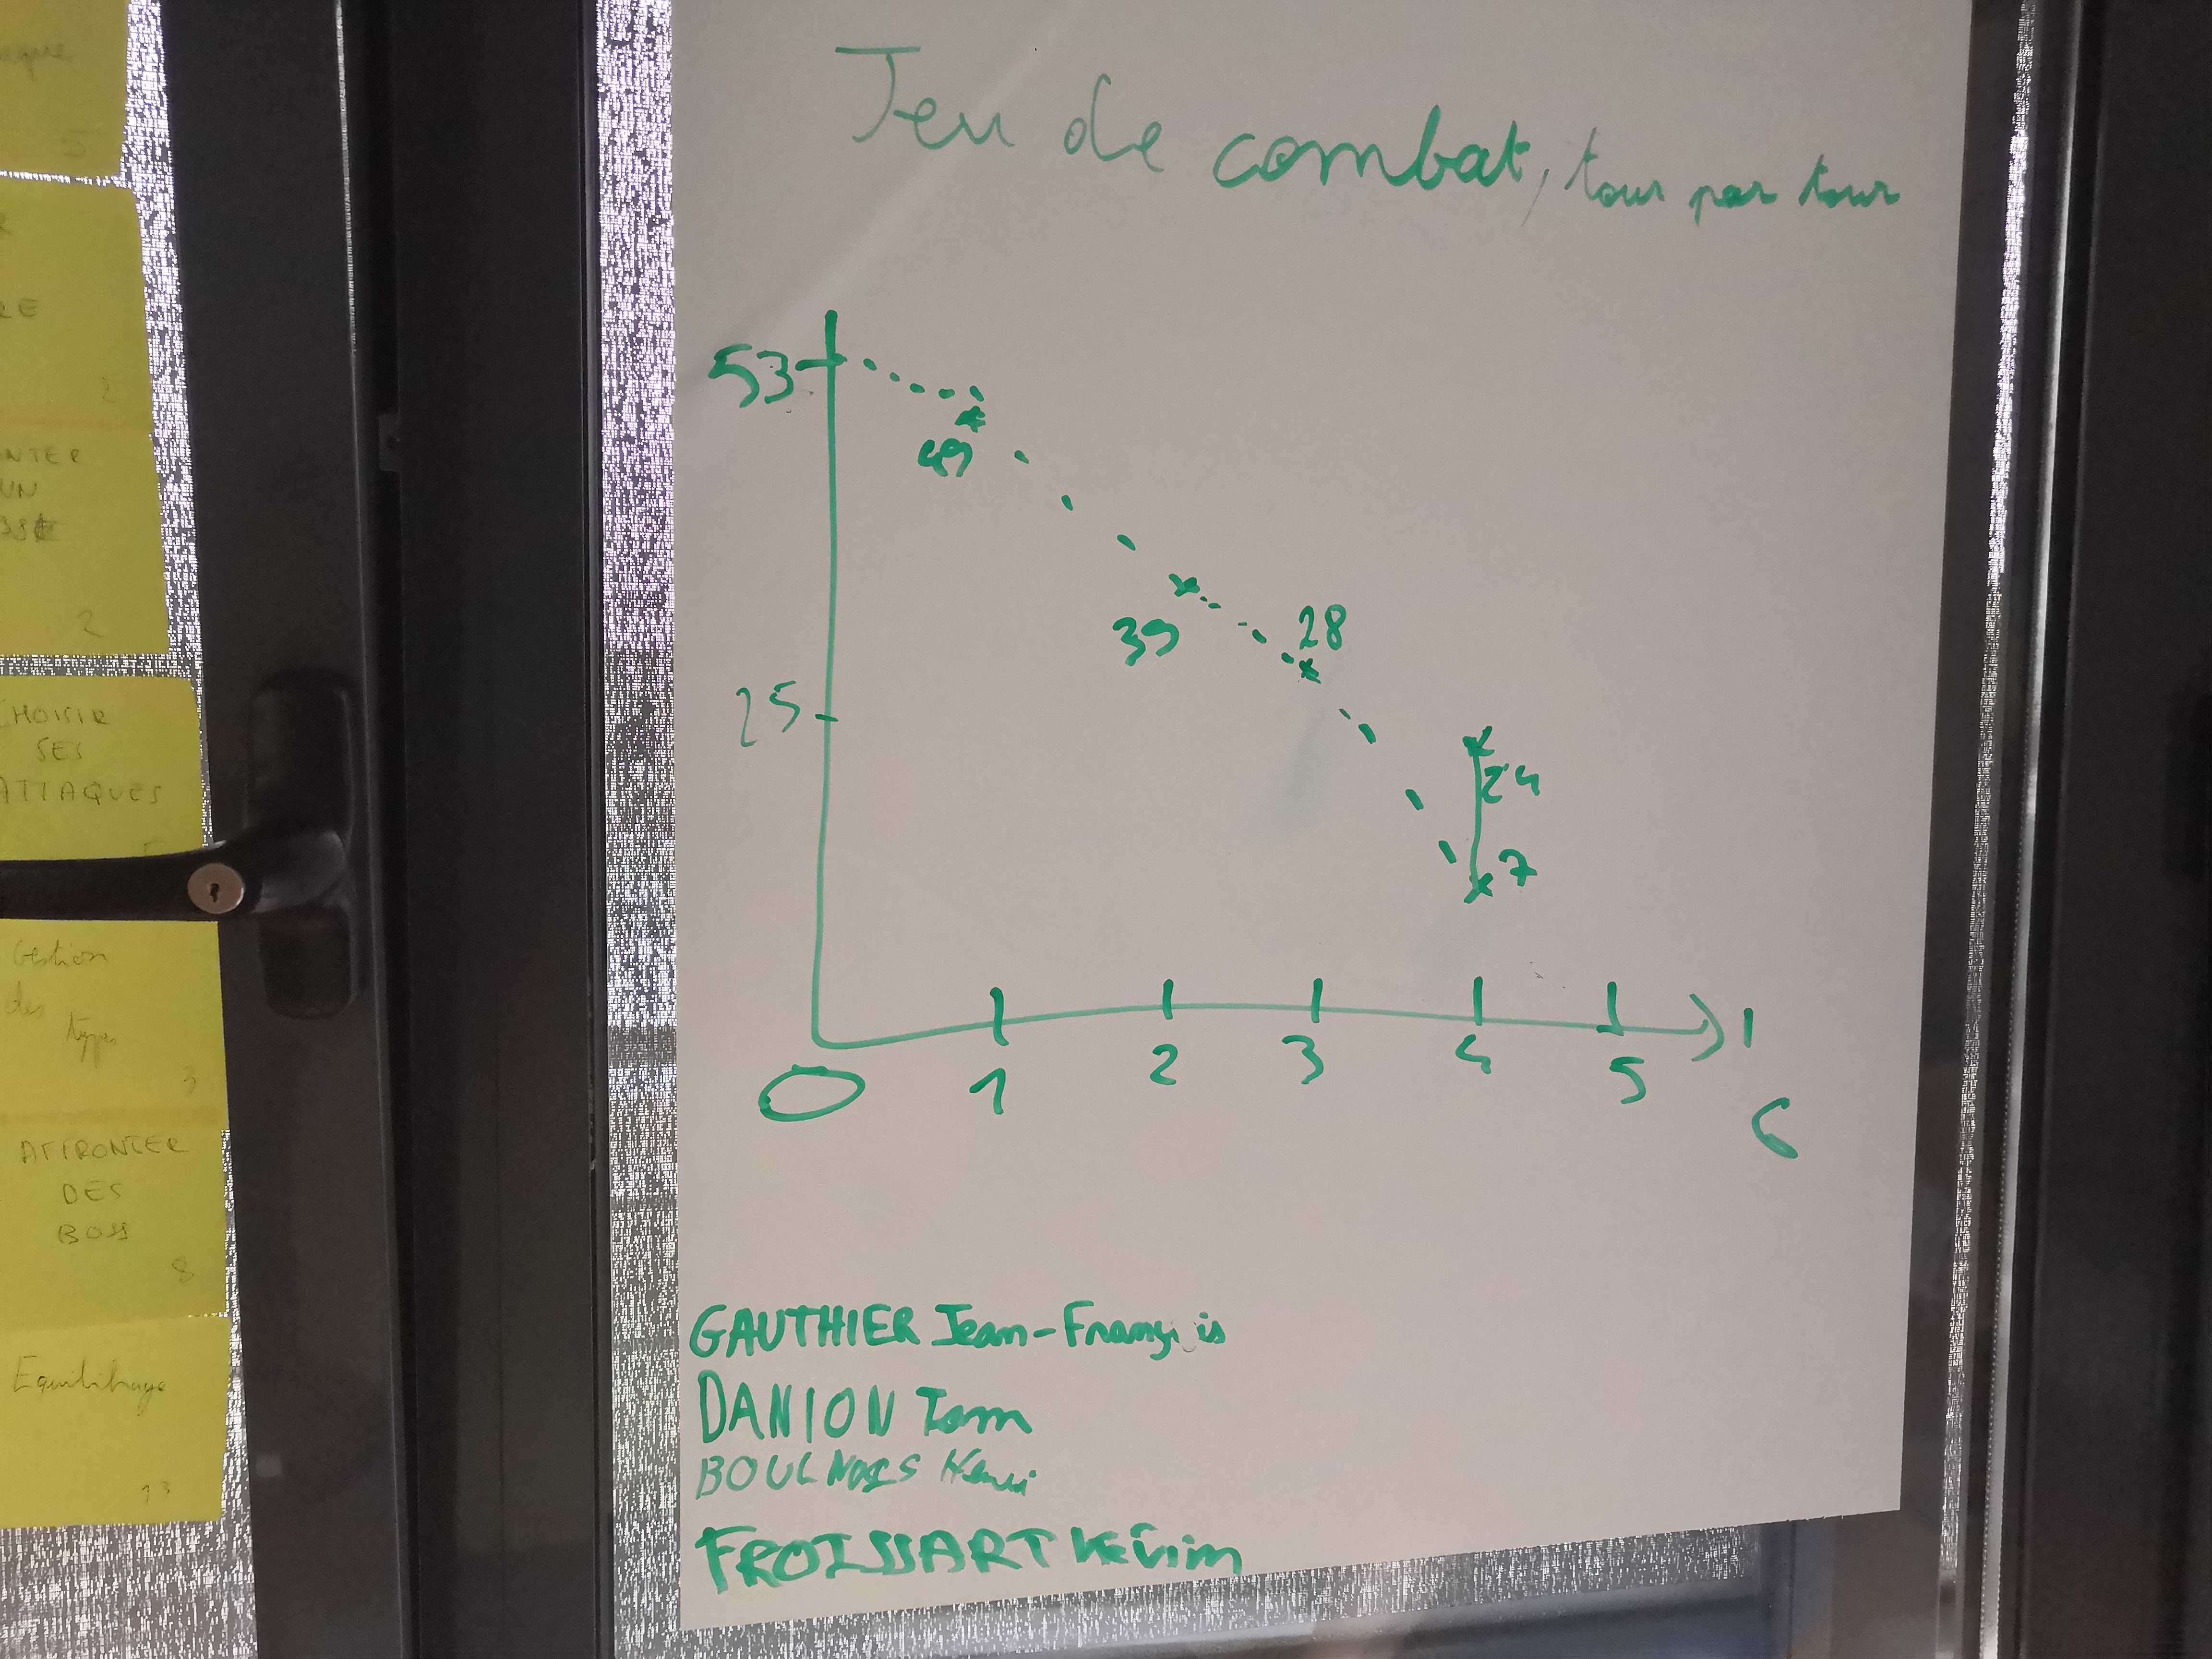 5
2
RE
2
NTER
UN
2
CHOISIR
SES
ATTAQUES
Gestion
des
types
3
AFFRONTER
DES
BOSS
8
Equilibrage
13
Jeu de combat, tour par tour
53
49
39
28
25
24
7
0 1 2 3 4 5 6
GAUTHIER Jean-François
DANION Tom
BOULNOIS Henri
FROISSART Kévin